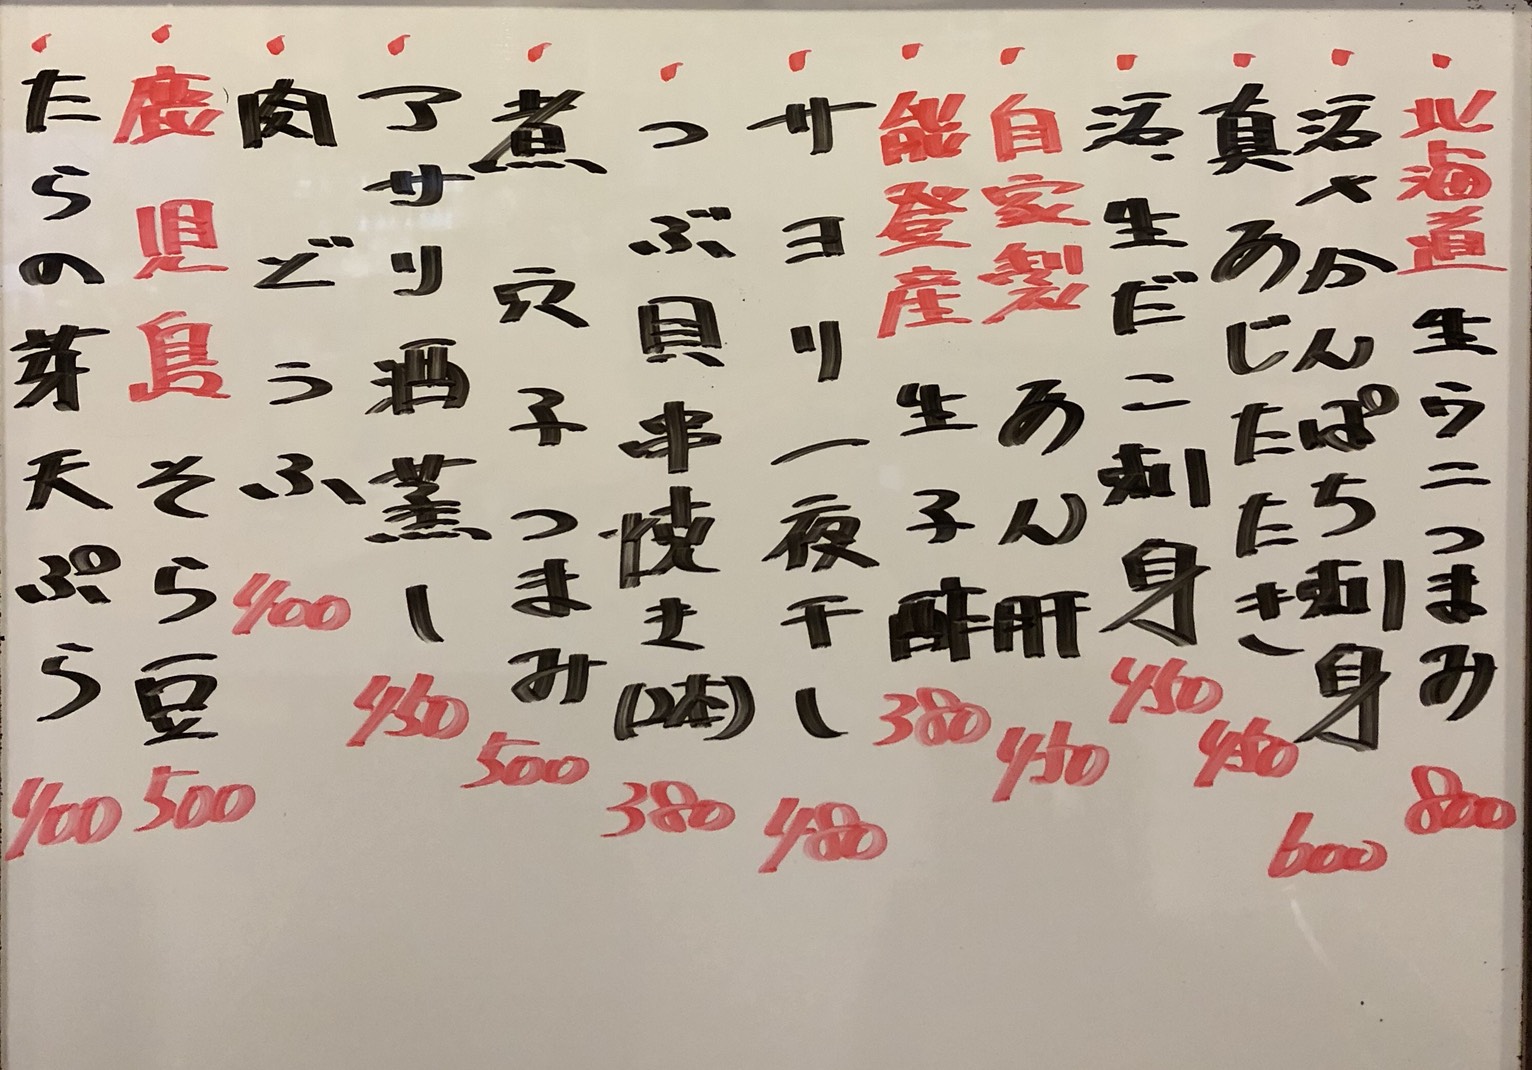 北海道 生ウニつまみ 800
活〆かんぱち刺身 600
真あじたたき 450
活生だこ刺身 450
自家製 あん肝 450
能登産 生子酢 380
サヨリ一夜干し 480
つぶ貝串焼き(2本) 380
煮穴子つまみ 500
アサリ酒蒸し 450
肉どうふ 400
鹿児島 そら豆 500
たらの芽天ぷら 400